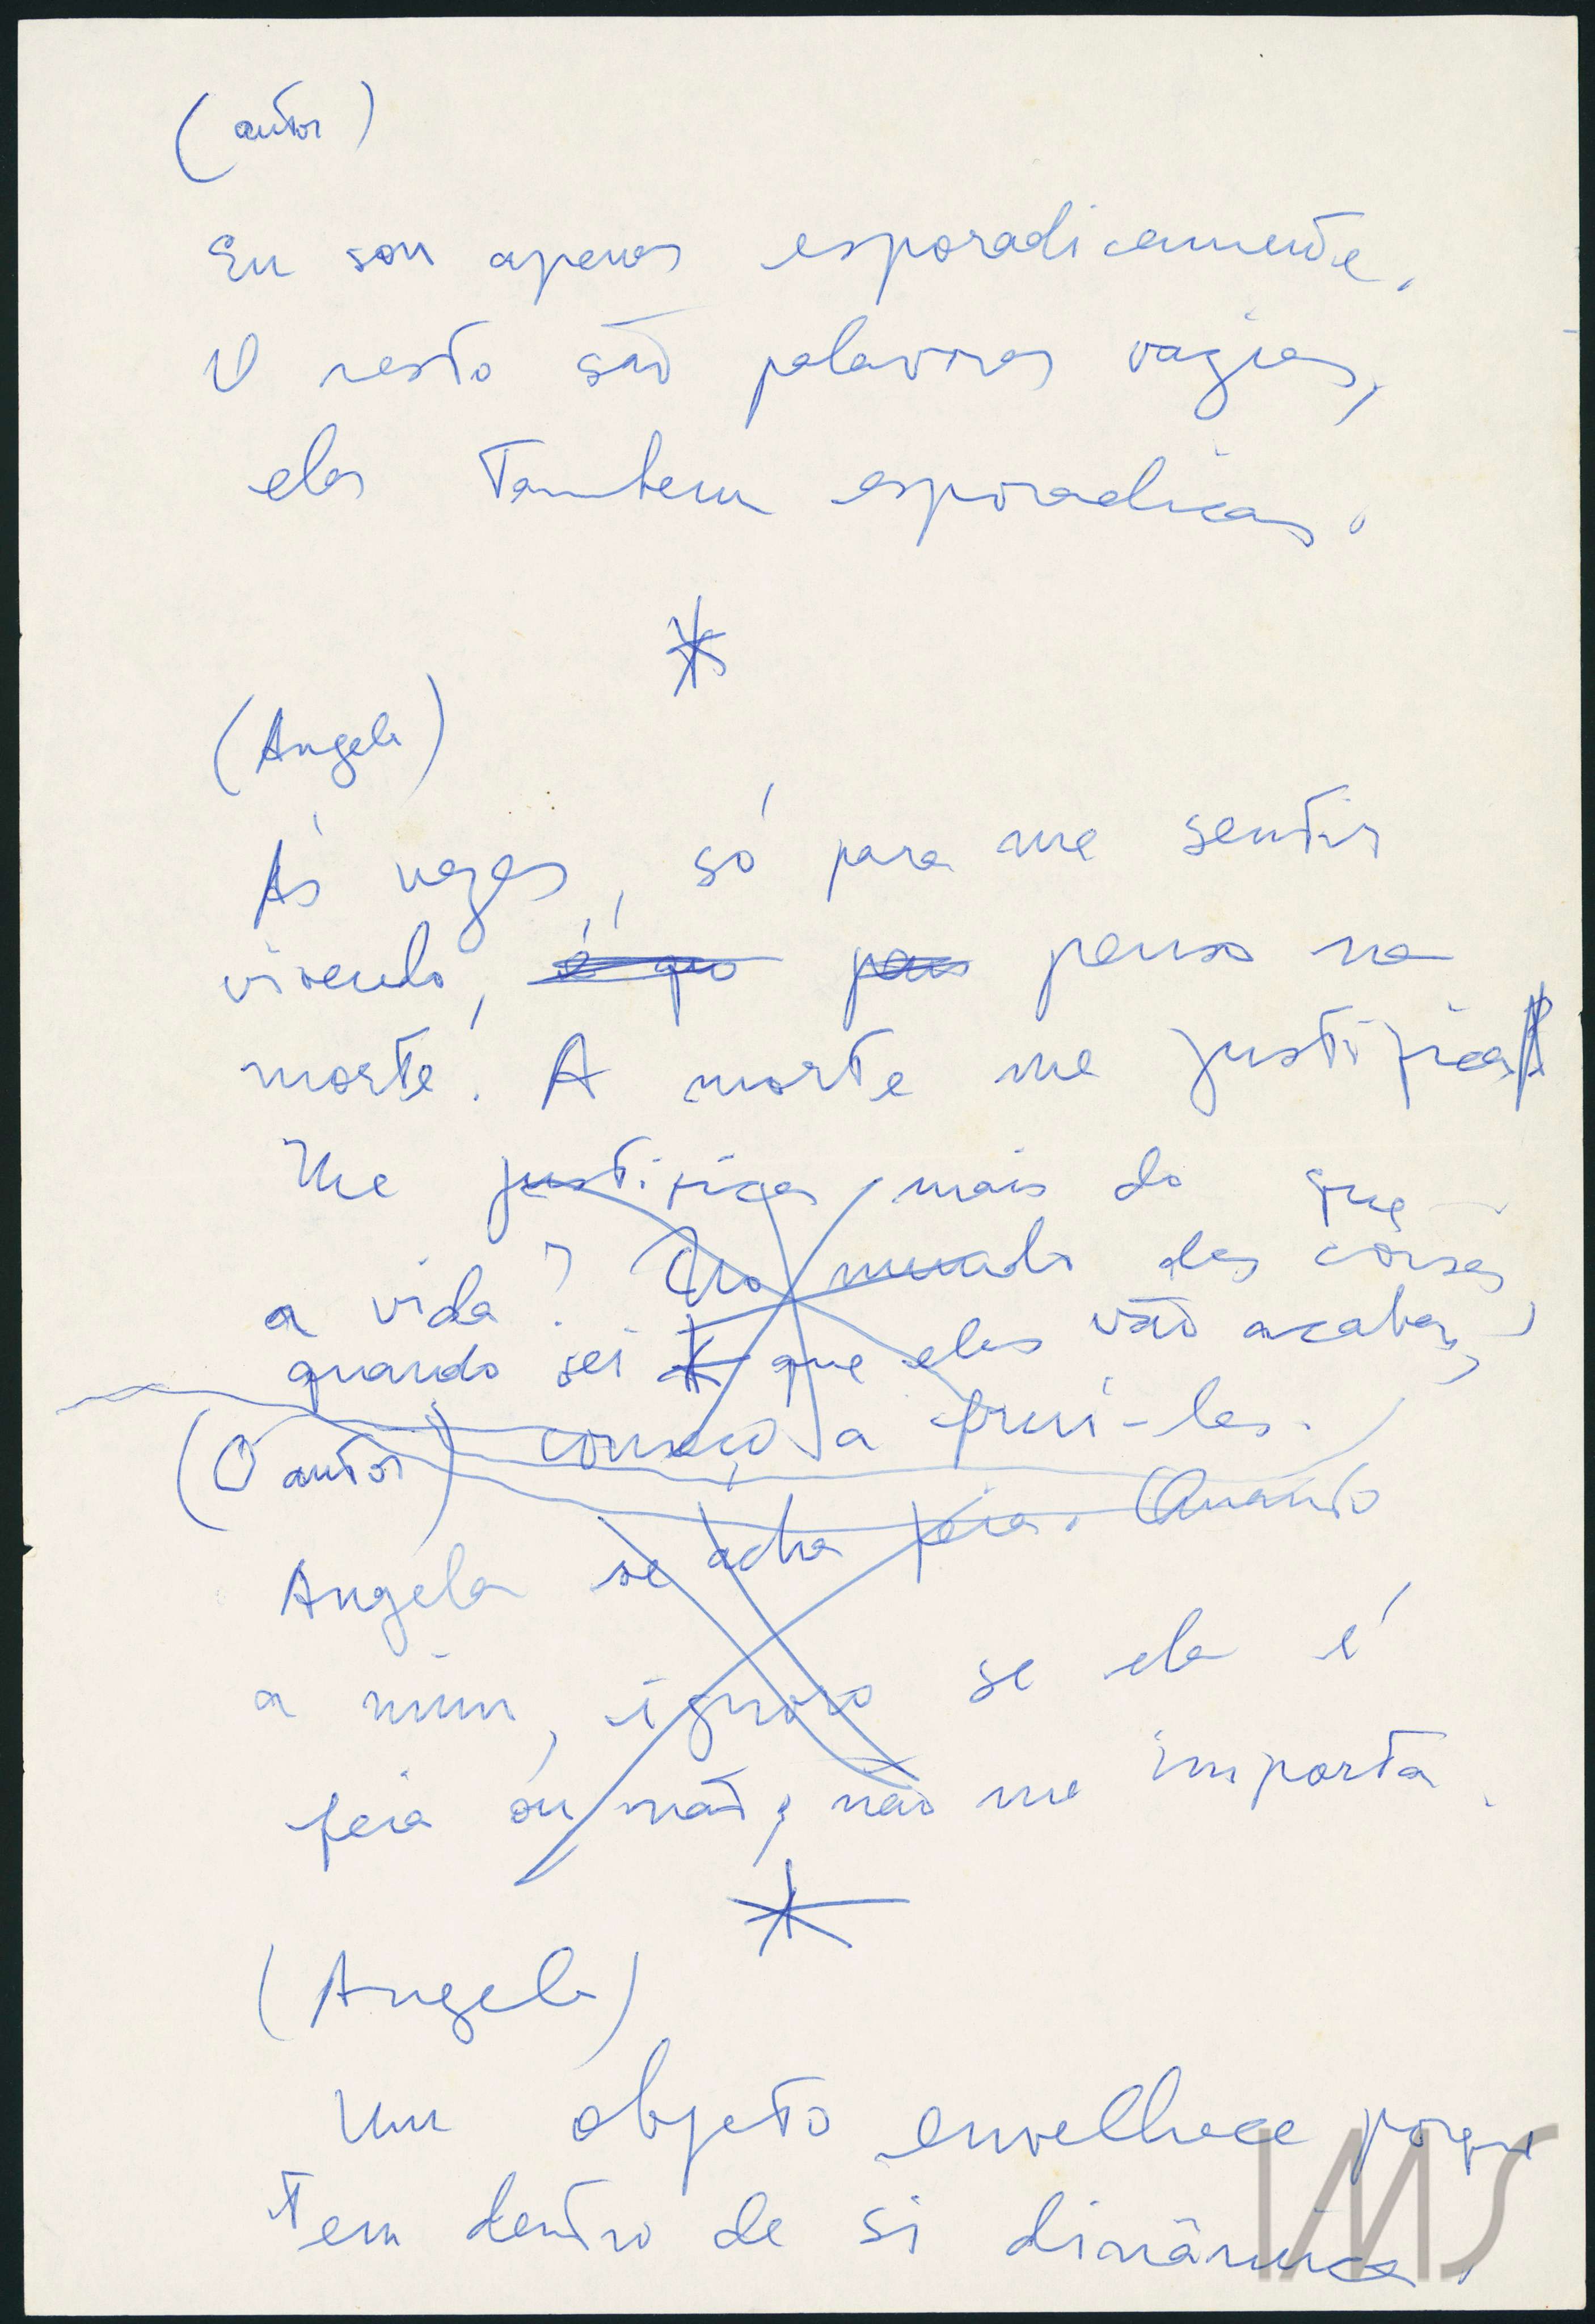 (autor)
Eu sou apenas esporadicamente.
O resto são palavras vazias,
elas tambem esporadicas.
*
(Angela)
Às vezes, só para me sentir
vivendo, é que pens penso na
morte. A morte me justifica
Me justifica mais do que
a vida? No mundo das coisas
quando sei que elas vão acabar,
começo a frui-las.
(O autor)
Angela se acha feia. Quanto
a mim, ignoro se ela é
feia ou não, não me importa.
*
(Angela)
Um objeto envelhece porque
tem dentro de si dinâmica.
IMS